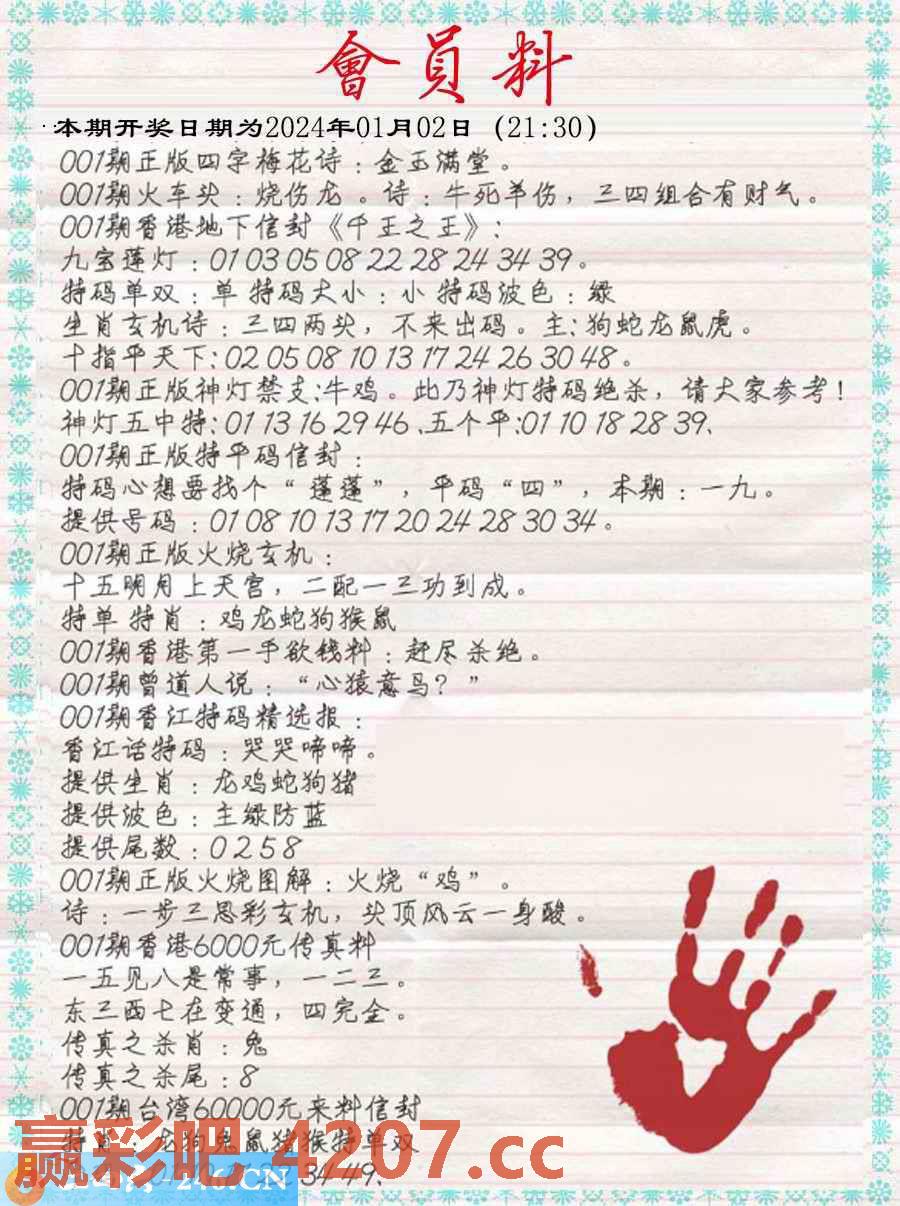 會員料
本期开奖日期为2024年01月02日（21:30）
001期正版四字梅花诗：金玉满堂。
001期火车头：烧伤龙。诗：牛死羊伤，三四组合有财气。
001期香港地下信封《千王之王》：
九宝莲灯：01 03 05 08 22 28 24 34 39。
特码单双：单 特码大小：小 特码波色：绿
生肖玄机诗：三四两头，不来出码。主：狗蛇龙鼠虎。
十指平天下：02 05 08 10 13 17 24 26 30 48。
001期正版神灯禁支：牛鸡。此乃神灯特码绝杀，请大家参考！
神灯五中特：01 13 16 29 46、五个平：01 10 18 28 39、
001期正版特平码信封：
特码心想要找个“蓬蓬”，平码“四”，本期：一九。
提供号码：01 08 10 13 17 20 24 28 30 34。
001期正版火烧玄机：
十五明月上天宫，二配一三功到成。
特单 特肖：鸡龙蛇狗猴鼠
001期香港第一手欲钱料：赶尽杀绝。
001期曾道人说：“心猿意马？”
001期香江特码精选报：
香江话特码：哭哭啼啼。
提供生肖：龙鸡蛇狗猪
提供波色：主绿防蓝
提供尾数：0 2 5 8
001期正版火烧图解：火烧“鸡”。
诗：一步三思彩玄机，头顶风云一身酸。
001期香港6000元传真料
一五见八是常事，一二三。
东三西七在变通，四完全。
传真之杀肖：兔
传真之杀尾：8
001期台湾60000元来料信封
特肖：龙狗兔鼠猪猴特单双
34 49、
赢彩吧.4207.cc
246.CN